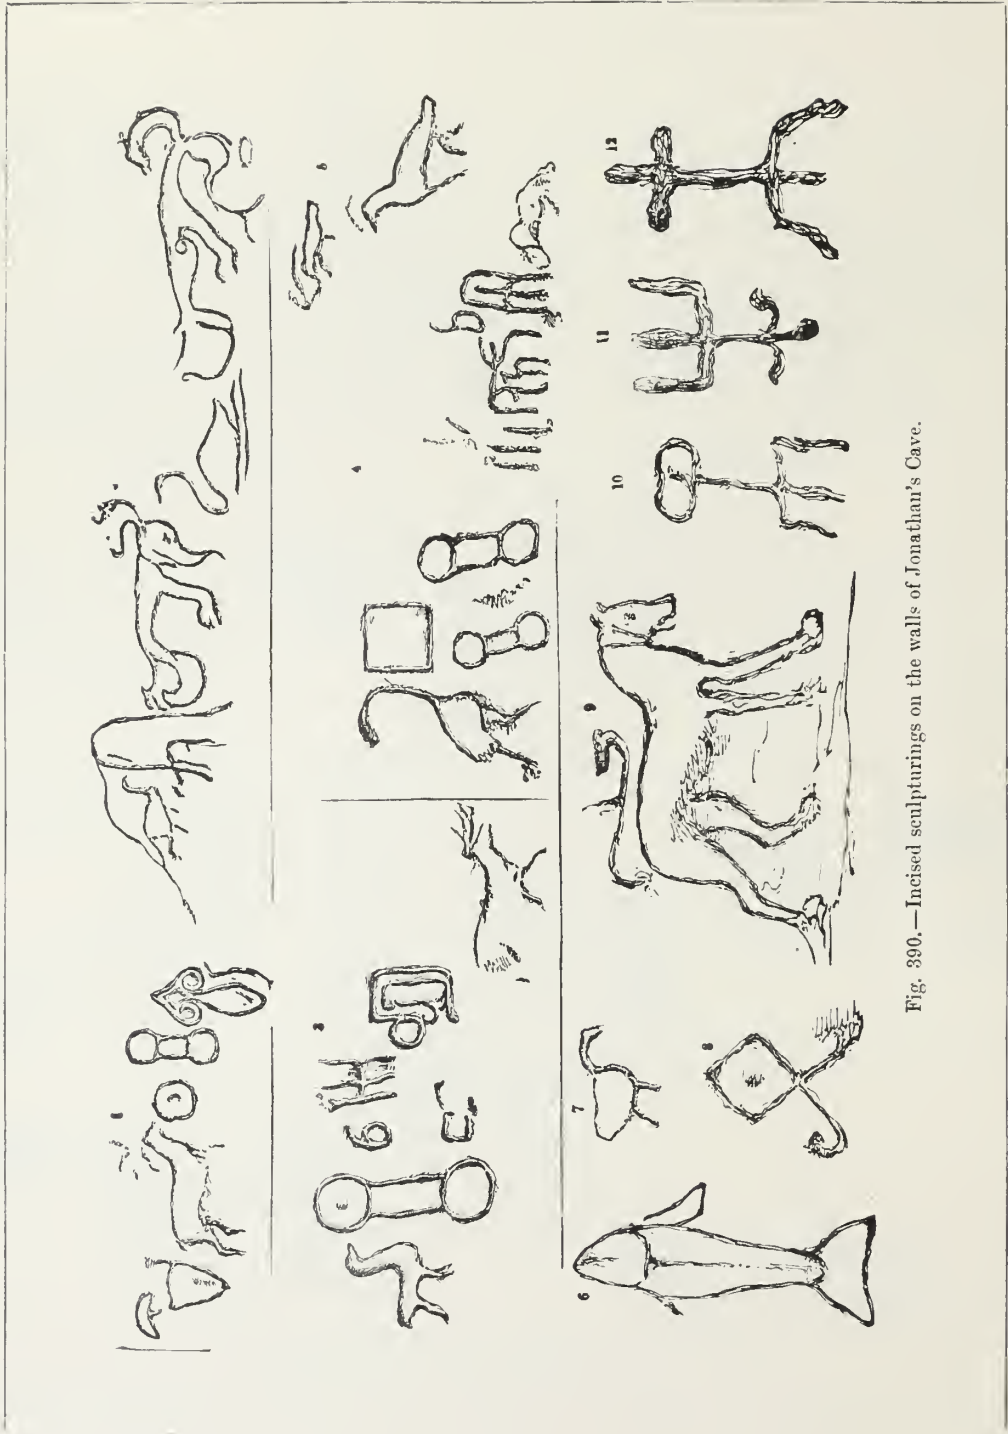 1
3
4
5
6
7
8
9
10
11
12
Fig. 390.—Incised sculpturings on the walls of Jonathan's Cave.